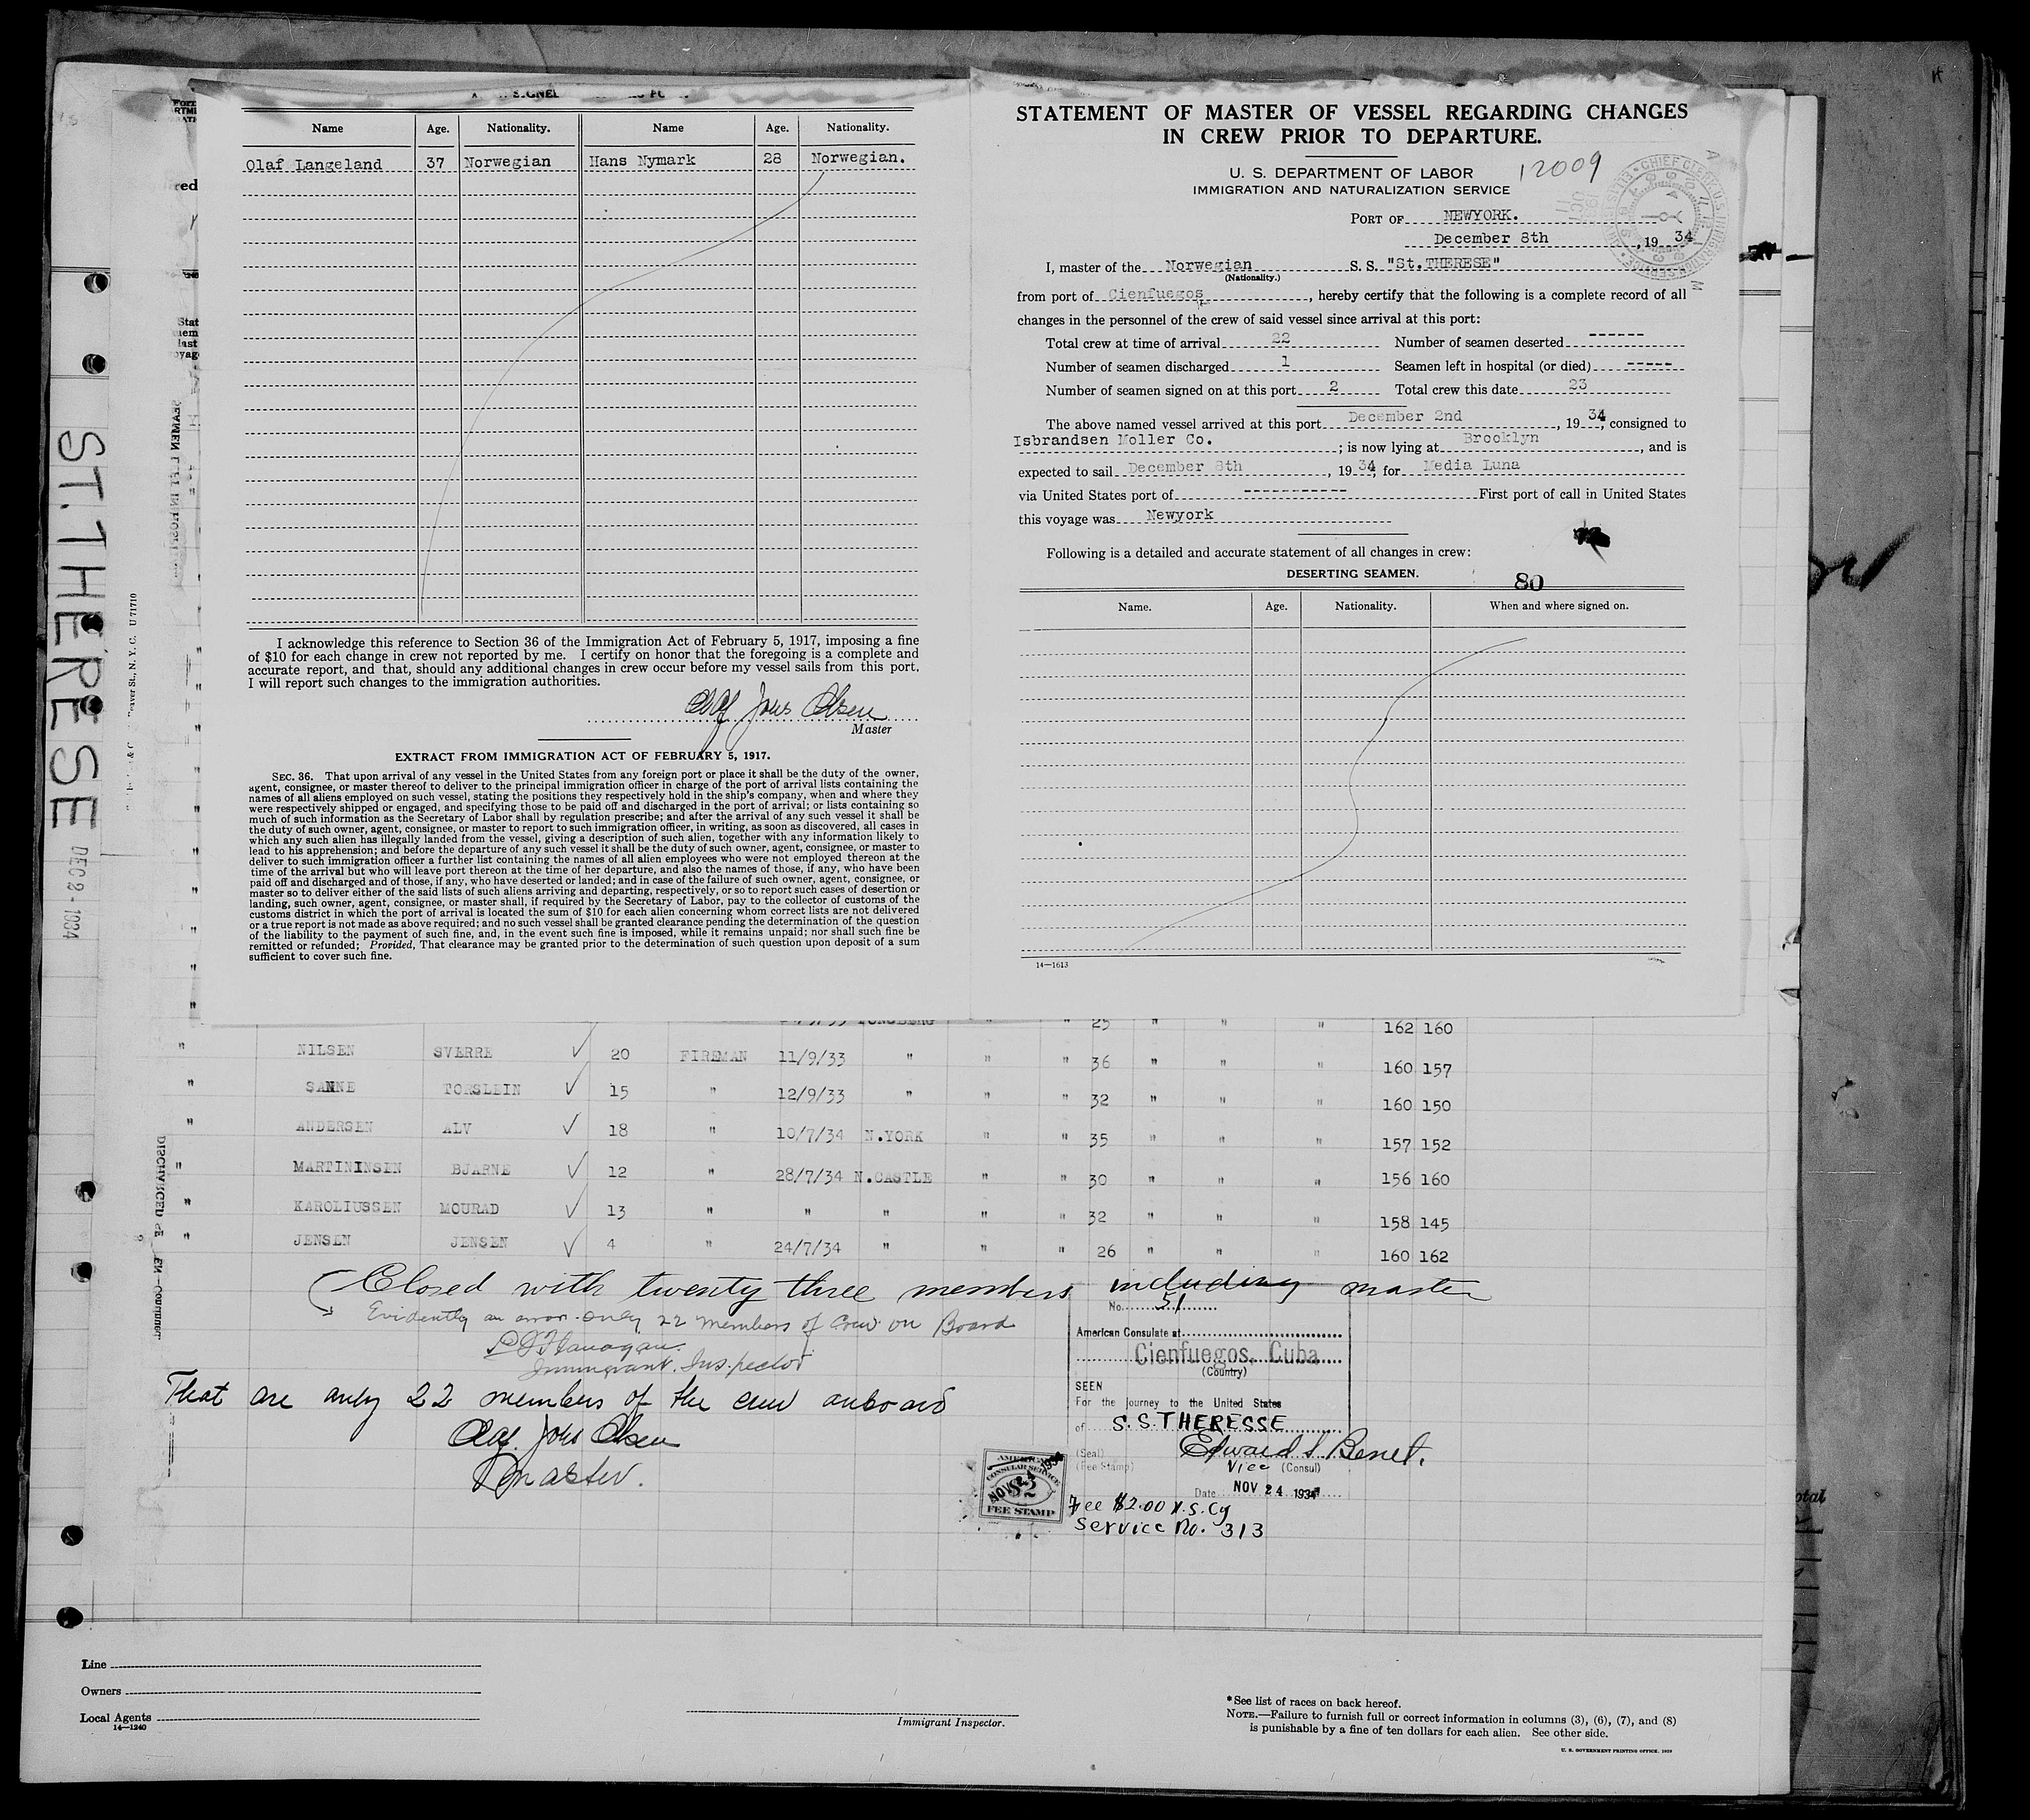 Name Age. Nationality. Name Age. Nationality.
Olaf Langeland 37 Norwegian Hans Nymark 28 Norwegian.
I acknowledge this reference to Section 36 of the Immigration Act of February 5, 1917, imposing a fine
of $10 for each change in crew not reported by me. I certify on honor that the foregoing is a complete and
accurate report, and that, should any additional changes in crew occur before my vessel sails from this port,
I will report such changes to the immigration authorities.
Olaf Johs Olsen
Master
EXTRACT FROM IMMIGRATION ACT OF FEBRUARY 5, 1917.
SEC. 36. That upon arrival of any vessel in the United States from any foreign port or place it shall be the duty of the owner,
agent, consignee, or master thereof to deliver to the principal immigration officer in charge of the port of arrival lists containing the
names of all aliens employed on such vessel, stating the positions they respectively hold in the ship's company, when and where they
were respectively shipped or engaged, and specifying those to be paid off and discharged in the port of arrival; or lists containing so
much of such information as the Secretary of Labor shall by regulation prescribe; and after the arrival of any such vessel it shall be
the duty of such owner, agent, consignee, or master to report to such immigration officer, in writing, as soon as discovered, all cases in
which any such alien has illegally landed from the vessel, giving a description of such alien, together with any information likely to
lead to his apprehension; and before the departure of any such vessel it shall be the duty of such owner, agent, consignee, or master to
deliver to such immigration officer a further list containing the names of all alien employees who were not employed thereon at the
time of the arrival but who will leave port thereon at the time of her departure, and also the names of those, if any, who have been
paid off and discharged and of those, if any, who have deserted or landed; and in case of the failure of such owner, agent, consignee, or
master so to deliver either of the said lists of such aliens arriving and departing, respectively, or so to report such cases of desertion or
landing, such owner, agent, consignee, or master shall, if required by the Secretary of Labor, pay to the collector of customs of the
customs district in which the port of arrival is located the sum of $10 for each alien concerning whom correct lists are not delivered
or a true report is not made as above required; and no such vessel shall be granted clearance pending the determination of the question
of the liability to the payment of such fine, and, in the event such fine is imposed, while it remains unpaid; nor shall such fine be
remitted or refunded; Provided, That clearance may be granted prior to the determination of such question upon deposit of a sum
sufficient to cover such fine.
STATEMENT OF MASTER OF VESSEL REGARDING CHANGES
IN CREW PRIOR TO DEPARTURE.
U. S. DEPARTMENT OF LABOR
IMMIGRATION AND NATURALIZATION SERVICE
12009
PORT OF NEWYORK.
December 8th , 19 34
I, master of the Norwegian S. S. "St.THERESE"
(Nationality.)
from port of Cienfuegos , hereby certify that the following is a complete record of all
changes in the personnel of the crew of said vessel since arrival at this port:
Total crew at time of arrival 22 Number of seamen deserted ------
Number of seamen discharged 1 Seamen left in hospital (or died) -----
Number of seamen signed on at this port 2 Total crew this date 23
The above named vessel arrived at this port December 2nd , 19 34, consigned to
Isbrandsen Moller Co. ; is now lying at Brooklyn , and is
expected to sail December 8th , 19 34, for Media Luna
via United States port of ----------- First port of call in United States
this voyage was Newyork
Following is a detailed and accurate statement of all changes in crew:
DESERTING SEAMEN.
80
Name. Age. Nationality. When and where signed on.
14—1613
ST. THERESE DEC 2 - 1934
25 " " " 162 160
" NILSEN SVERRE ✓ 20 FIREMAN 11/9/33 " " " 36 " " " 160 157
" SANNE TORSLEIN ✓ 15 " 12/9/33 " " " 32 " " " 160 150
ANDERSEN ALV ✓ 18 " 10/7/34 N.YORK " " 35 " " " 157 152
" MARTININSEN BJARNE ✓ 12 " 28/7/34 N.CASTLE " " 30 " " " 156 160
" KAROLIUSSEN MOURAD ✓ 13 " " " " " 32 " " " 158 145
" JENSEN JENSEN ✓ 4 " 24/7/34 " " " 26 " " " 160 162
Closed with twenty three members including master
Evidently an error. Only 22 members of Crew on Board
P J Flanagan.
Immigrant. Inspector
That are only 22 members of the crew onboard
Olaf Johs Olsen
Master.
No. 51
American Consulate at
Cienfuegos, Cuba
(Country)
SEEN
For the journey to the United States
of S.S. THERESSE
(Seal) Edward S. Benet.
(Fee Stamp) Vice (Consul)
Date NOV 24 1934
Fee $2.00 U.S. Cy
Service No. 313
AMERICAN
CONSULAR SERVICE
NOV 24 1934
$2
FEE STAMP
Line
Owners
Local Agents
14—1240
Immigrant Inspector.
*See list of races on back hereof.
NOTE.—Failure to furnish full or correct information in columns (3), (6), (7), and (8)
is punishable by a fine of ten dollars for each alien. See other side.
U. S. GOVERNMENT PRINTING OFFICE. 1929